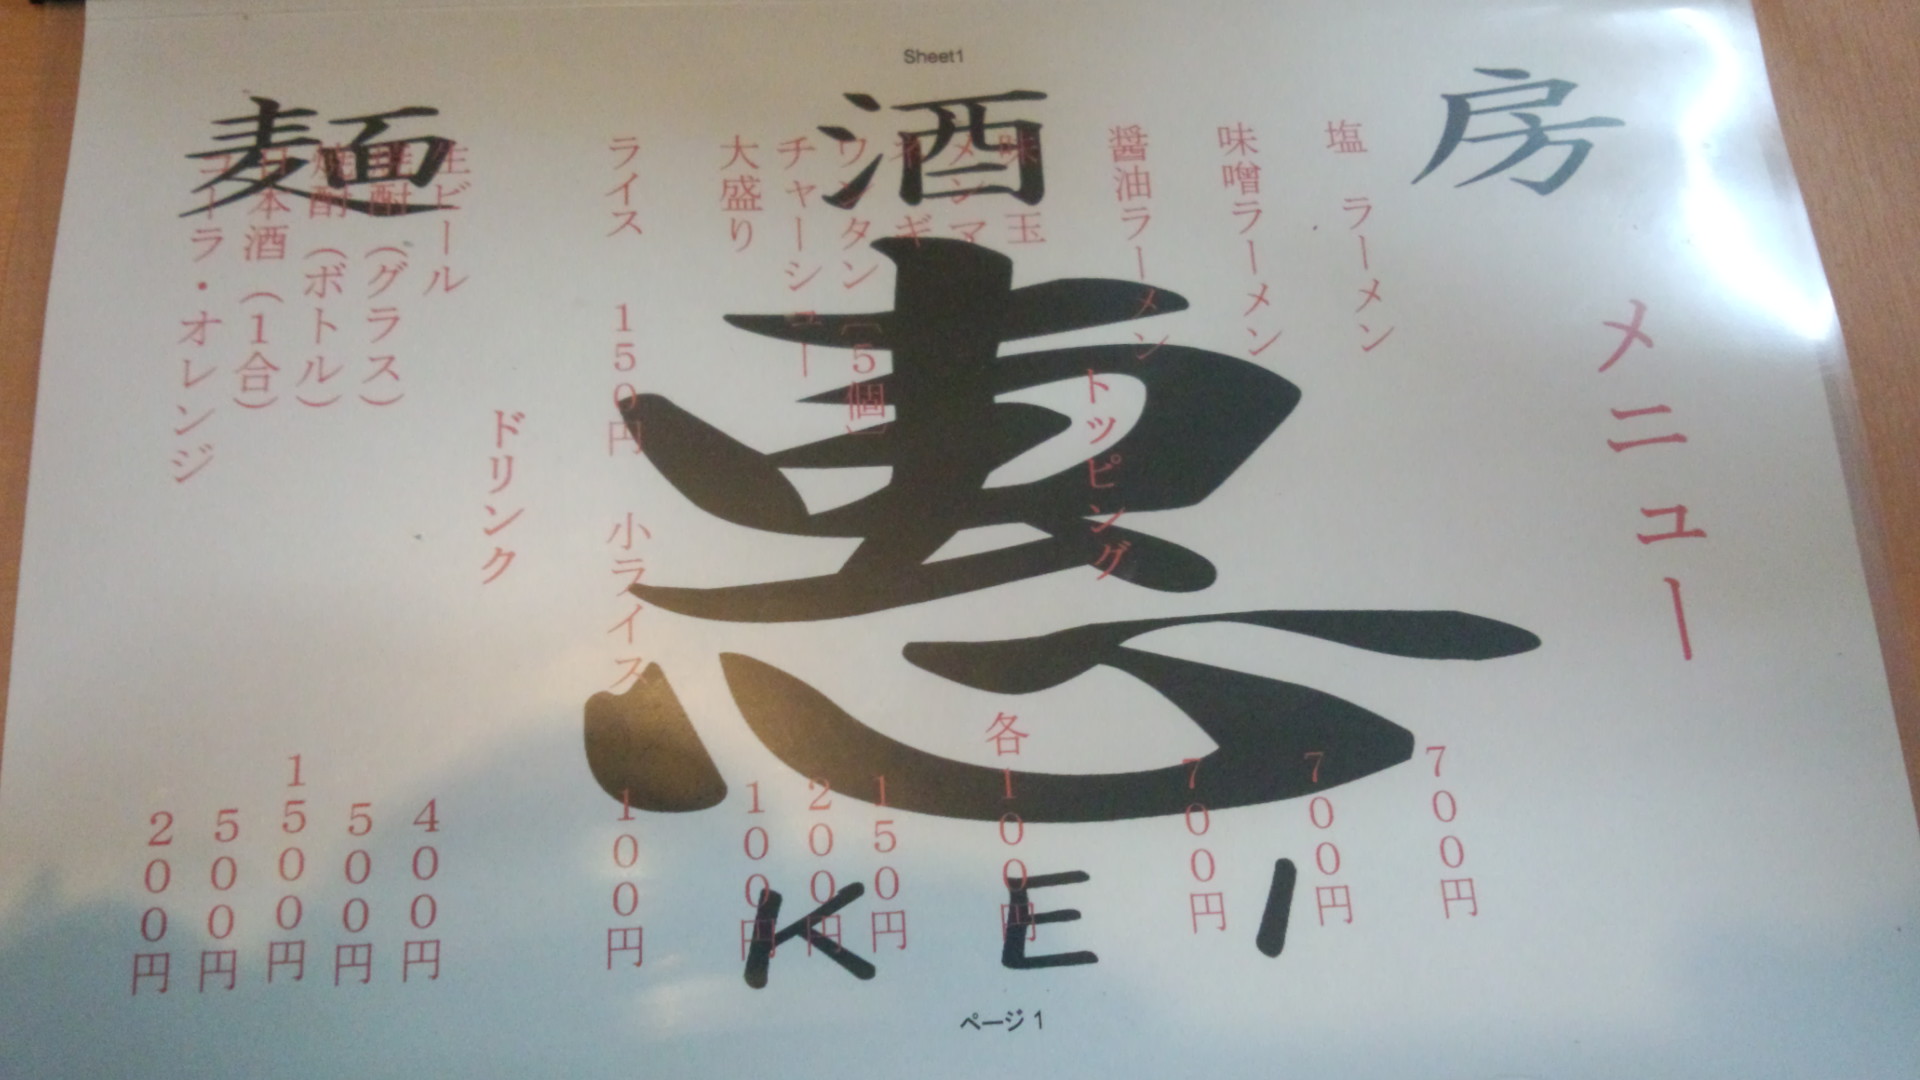 Sheet1
麺酒房
惠
KEI
メニュー
塩 ラーメン 700円
味噌ラーメン 700円
醤油ラーメン 700円
トッピング
味玉
メンマ
ネギ
各100円
ワンタン〔5個〕 150円
チャーシュー 200円
大盛り 100円
ライス 150円 小ライス 100円
ドリンク
生ビール 400円
焼酎(グラス) 500円
焼酎(ボトル) 1500円
日本酒(1合) 500円
コーラ・オレンジ 200円
ページ 1